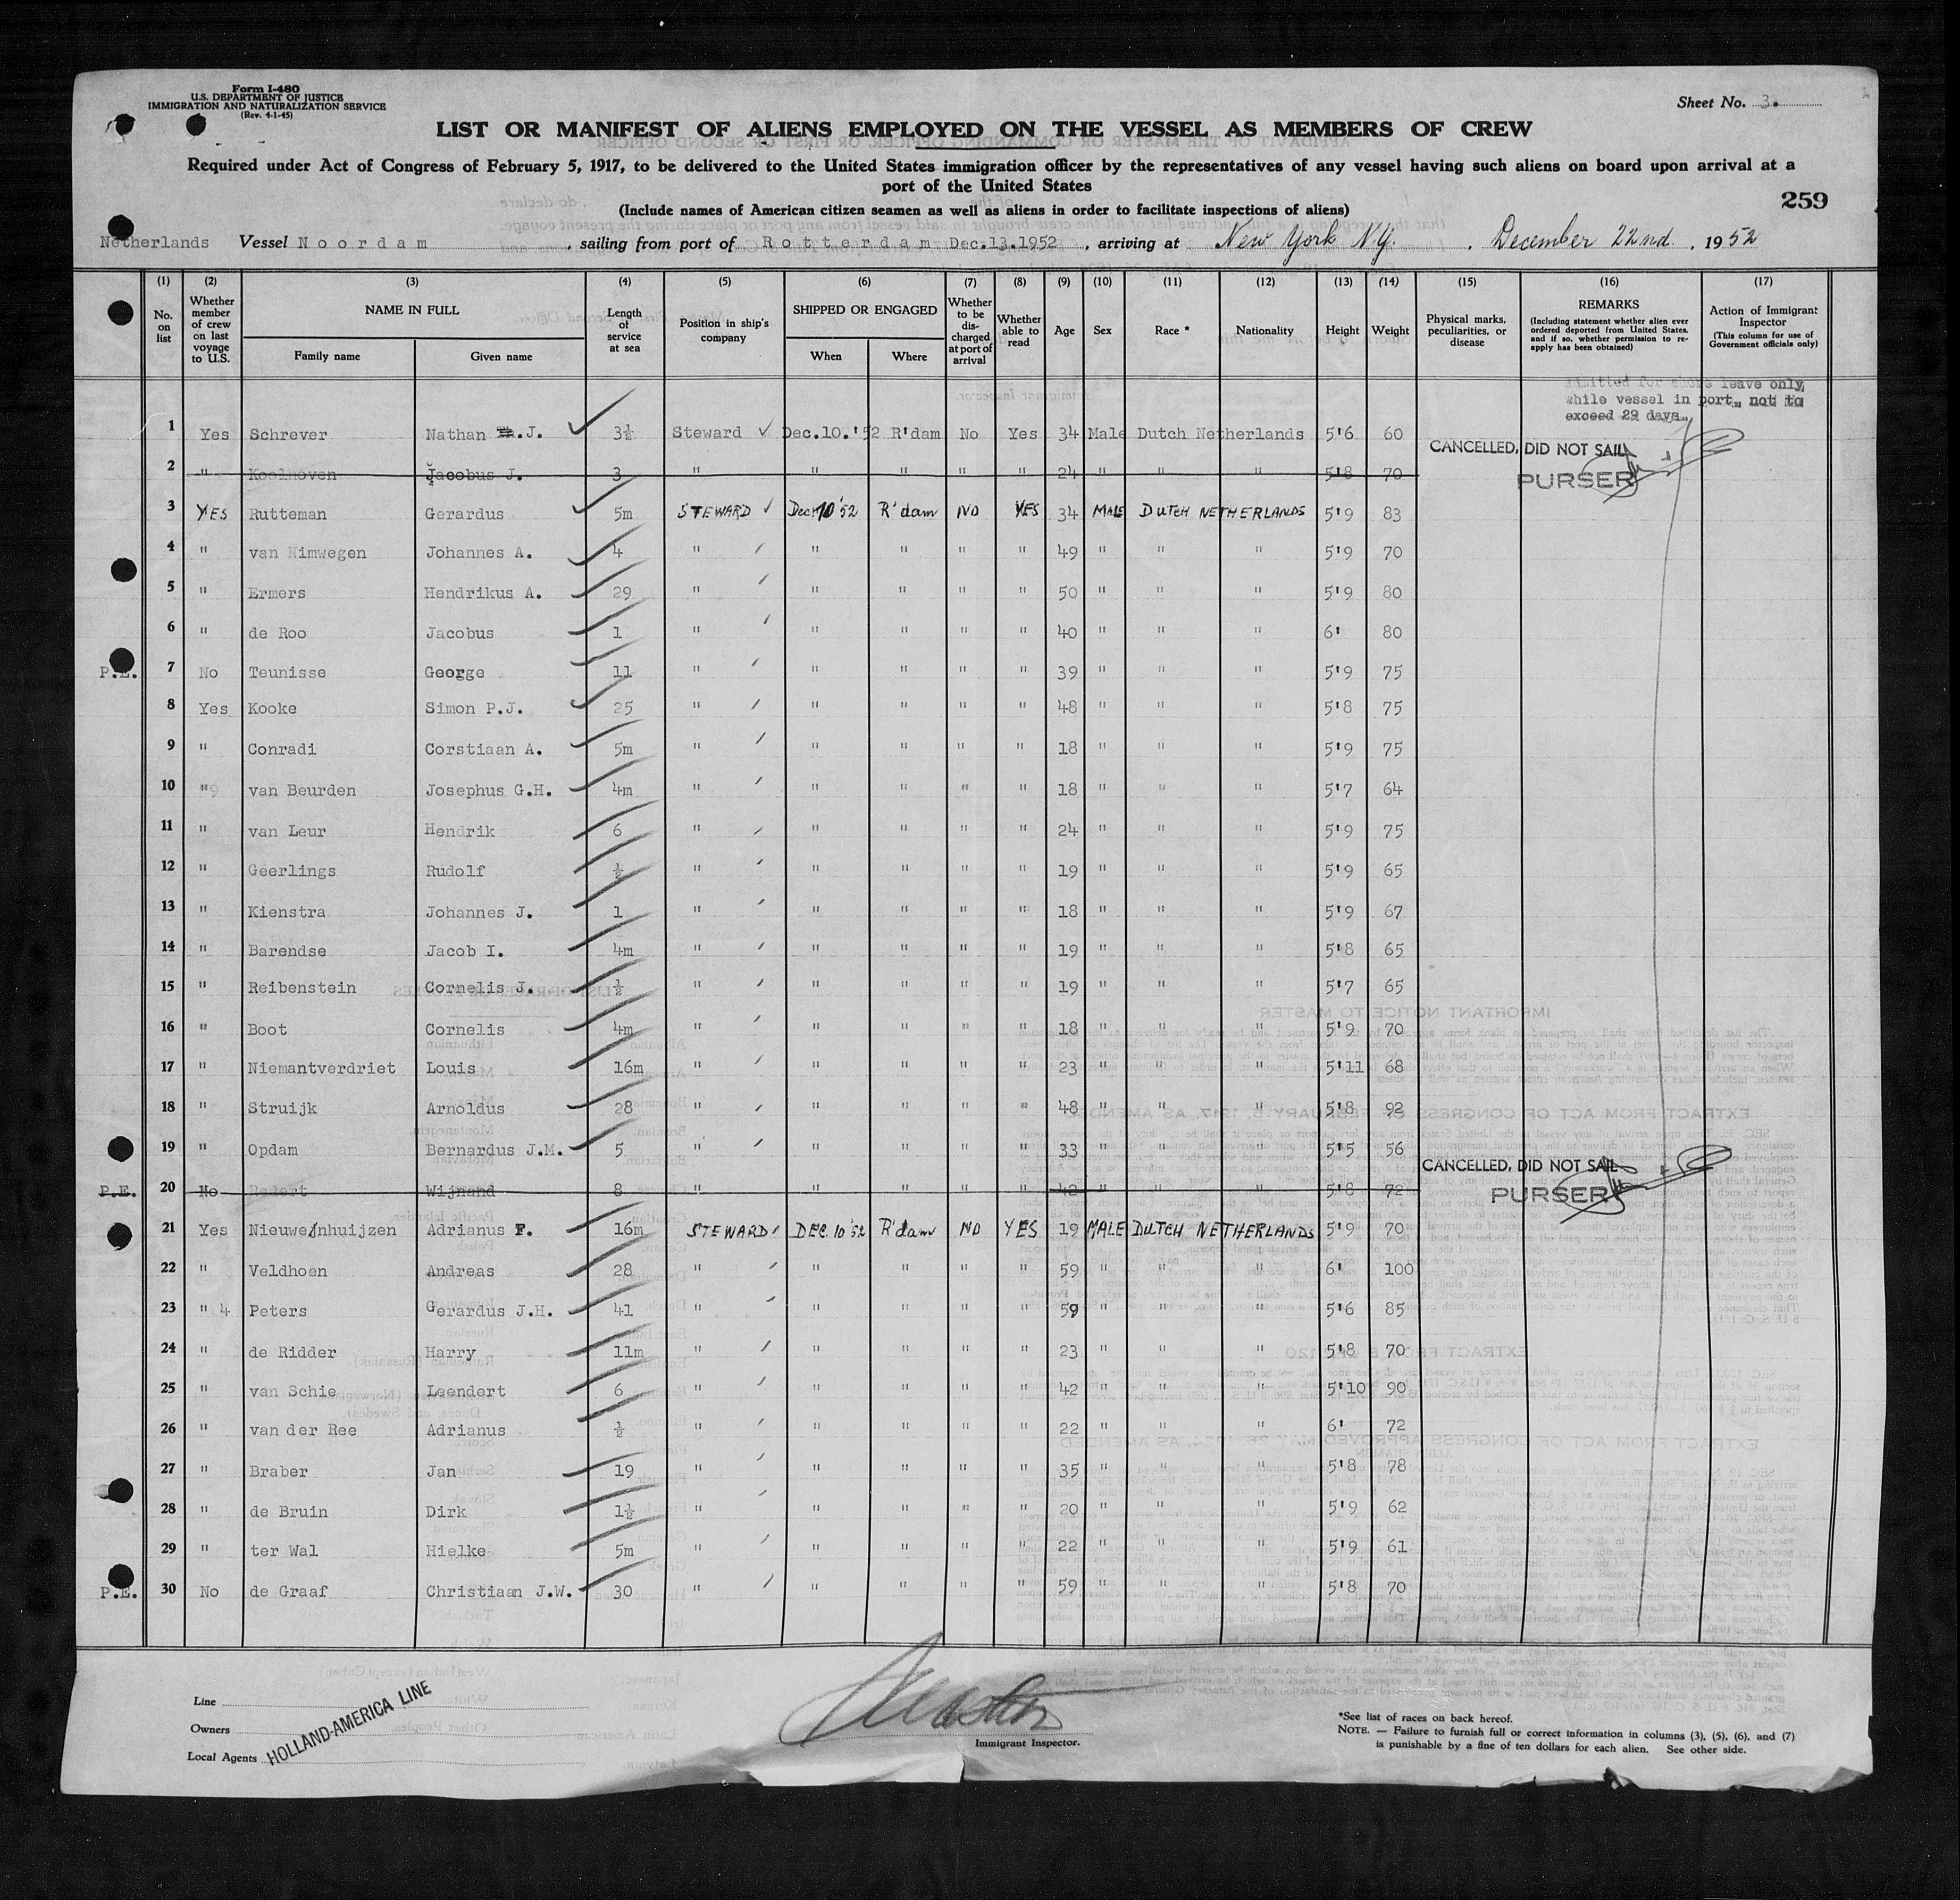 Form I-480
U.S. DEPARTMENT OF JUSTICE
IMMIGRATION AND NATURALIZATION SERVICE
(Rev. 4-1-45)
Sheet No. 3.
LIST OR MANIFEST OF ALIENS EMPLOYED ON THE VESSEL AS MEMBERS OF CREW
Required under Act of Congress of February 5, 1917, to be delivered to the United States immigration officer by the representatives of any vessel having such aliens on board upon arrival at a
port of the United States
(Include names of American citizen seamen as well as aliens in order to facilitate inspections of aliens)
259
Netherlands Vessel Noordam, sailing from port of Rotterdam Dec.13.1952, arriving at New York N.Y., December 22nd, 1952
(1) (2) (3) (4) (5) (6) (7) (8) (9) (10) (11) (12) (13) (14) (15) (16) (17)
No. on list
Whether member of crew on last voyage to U.S.
NAME IN FULL
Family name
Given name
Length of service at sea
Position in ship's company
SHIPPED OR ENGAGED
When
Where
Whether to be discharged at port of arrival
Whether able to read
Age
Sex
Race *
Nationality
Height
Weight
Physical marks, peculiarities, or disease
REMARKS
(Including statement whether alien ever ordered deported from United States, and if so, whether permission to re-apply has been obtained)
Action of Immigrant Inspector
(This column for use of Government officials only)
admitted for shore leave only,
while vessel in port, not to
exceed 29 days.
1 Yes Schrever Nathan J. 3½ Steward Dec.10.'52 R'dam No Yes 34 Male Dutch Netherlands 5'6 60
CANCELLED, DID NOT SAIL
PURSER
2 " Koolhoven Jacobus J. 3 " " " " " 24 " " " 5'8 70
3 YES Rutteman Gerardus 5m STEWARD Dec.10'52 R'dam NO YES 34 MALE DUTCH NETHERLANDS 5'9 83
4 " van Nimwegen Johannes A. 4 " " " " " 49 " " " 5'9 70
5 " Ermers Hendrikus A. 29 " " " " " 50 " " " 5'9 80
6 " de Roo Jacobus 1 " " " " " 40 " " " 6' 80
P.E. 7 No Teunisse George 11 " " " " " 39 " " " 5'9 75
8 Yes Kooke Simon P.J. 25 " " " " " 48 " " " 5'8 75
9 " Conradi Corstiaan A. 5m " " " " " 18 " " " 5'9 75
10 " van Beurden Josephus G.H. 4m " " " " " 18 " " " 5'7 64
11 " van Leur Hendrik 6 " " " " " 24 " " " 5'9 75
12 " Geerlings Rudolf ½ " " " " " 19 " " " 5'9 65
13 " Kienstra Johannes J. 1 " " " " " 18 " " " 5'9 67
14 " Barendse Jacob I. 4m " " " " " 19 " " " 5'8 65
15 " Reibenstein Cornelis J. ½ " " " " " 19 " " " 5'7 65
16 " Boot Cornelis 4m " " " " " 18 " " " 5'9 70
17 " Niemantverdriet Louis 16m " " " " " 23 " " " 5'11 68
18 " Struijk Arnoldus 28 " " " " " 48 " " " 5'8 92
19 " Opdam Bernardus J.M. 5 " " " " " 33 " " " 5'5 56
CANCELLED, DID NOT SAIL
PURSER
P.E. 20 No Wijnand 8 " " " " " 42 " " " 5'8 72
21 Yes Nieuwenhuijzen Adrianus F. 16m STEWARD DEC.10'52 R'dam NO YES 19 MALE DUTCH NETHERLANDS 5'9 70
22 " Veldhoen Andreas 28 " " " " " 59 " " " 6' 100
23 " 4 Peters Gerardus J.H. 41 " " " " " 59 " " " 5'6 85
24 " de Ridder Harry 11m " " " " " 23 " " " 5'8 70
25 " van Schie Leendert 6 " " " " " 42 " " " 5'10 90
26 " van der Ree Adrianus ½ " " " " " 22 " " " 6' 72
27 " Braber Jan 19 " " " " " 35 " " " 5'8 78
28 " de Bruin Dirk 1½ " " " " " 20 " " " 5'9 62
29 " ter Wal Hielke 5m " " " " " 22 " " " 5'9 61
P.E. 30 No de Graaf Christiaan J.W. 30 " " " " " 59 " " " 5'8 70
Line
Owners
Local Agents
HOLLAND-AMERICA LINE
Immigrant Inspector.
*See list of races on back hereof.
NOTE. — Failure to furnish full or correct information in columns (3), (5), (6), and (7)
is punishable by a fine of ten dollars for each alien. See other side.